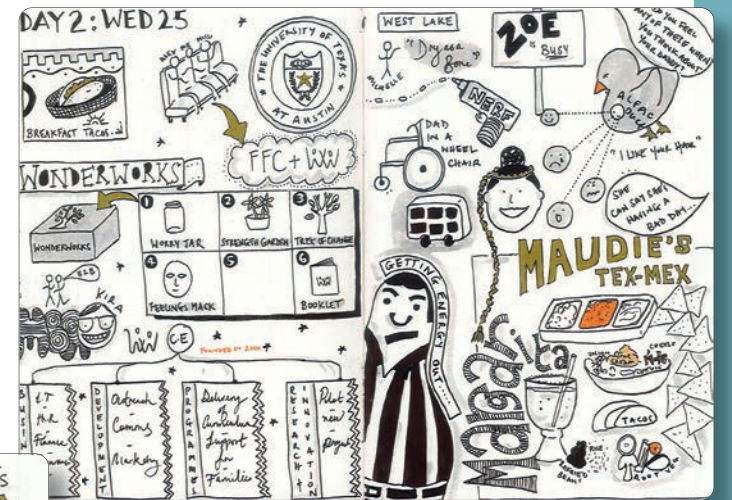 DAY 2: WED 25
BREAKFAST TACOS
THE UNIVERSITY OF TEXAS
AT AUSTIN
FFC +
WONDERWORKS
WONDERWORKS
1
WORRY JAR
2
STRENGTH GARDEN
3
TREE OF CHANGE
4
FEELINGS MASK
5
6
BOOKLET
B2B
KIRA
CE
FOUNDED IN
I.T
HR
Finance
DEVELOPMENT
Outreach
Comms
Marketing
PROGRAMMES
Delivery
of
Curriculum
Support
for
Families
RESEARCH +
INNOVATION
Pilot
new
WEST LAKE
MICHELLE
"Dry as a
Bone"
ZOE
IS BUSY
NERF
DO YOU FEEL
MOST OF THESE WHEN
YOU THINK ABOUT
YOUR DADDY?
ALFAC
DUCK
DAD
IN A
WHEEL
CHAIR
"I LIKE YOUR HAIR"
SHE
CAN SAY SHE'S
HAVING A
BAD DAY...
GETTING ENERGY OUT....
MAUDIE'S
TEX-MEX
Margarita
TACOS
BEANS